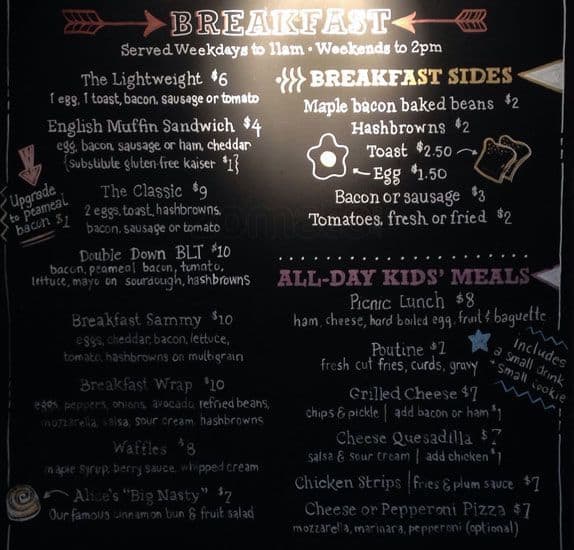 BREAKFAST
Served Weekdays to 11am • Weekends to 2pm
The Lightweight $6
1 egg, 1 toast, bacon, sausage or tomato
English Muffin Sandwich $4
egg, bacon, sausage or ham, cheddar
{substitute gluten-free kaiser $1}
Upgrade
to peameal
bacon $1
The Classic $9
2 eggs, toast, hashbrowns,
bacon, sausage or tomato
Double Down BLT $10
bacon, peameal bacon, tomato,
lettuce, mayo on sourdough, hashbrowns
Breakfast Sammy $10
eggs, cheddar, bacon, lettuce,
tomato, hashbrowns on multigrain
Breakfast Wrap $10
eggs, peppers, onions, avocado, refried beans,
mozzarella, salsa, sour cream, hashbrowns
Waffles $8
maple syrup, berry sauce, whipped cream
Alice's "Big Nasty" $7
Our famous cinnamon bun & fruit salad
BREAKFAST SIDES
Maple bacon baked beans $2
Hashbrowns $2
Toast $2.50
Egg $1.50
Bacon or sausage $3
Tomatoes, fresh or fried $2
ALL-DAY KIDS' MEALS
Picnic Lunch $8
ham, cheese, hard boiled egg, fruit & baguette
Poutine $7
fresh cut fries, curds, gravy
Includes
a small drink
& small cookie
Grilled Cheese $7
chips & pickle | add bacon or ham $1
Cheese Quesadilla $7
salsa & sour cream | add chicken $1
Chicken Strips | fries & plum sauce $7
Cheese or Pepperoni Pizza $7
mozzarella, marinara, pepperoni (optional)